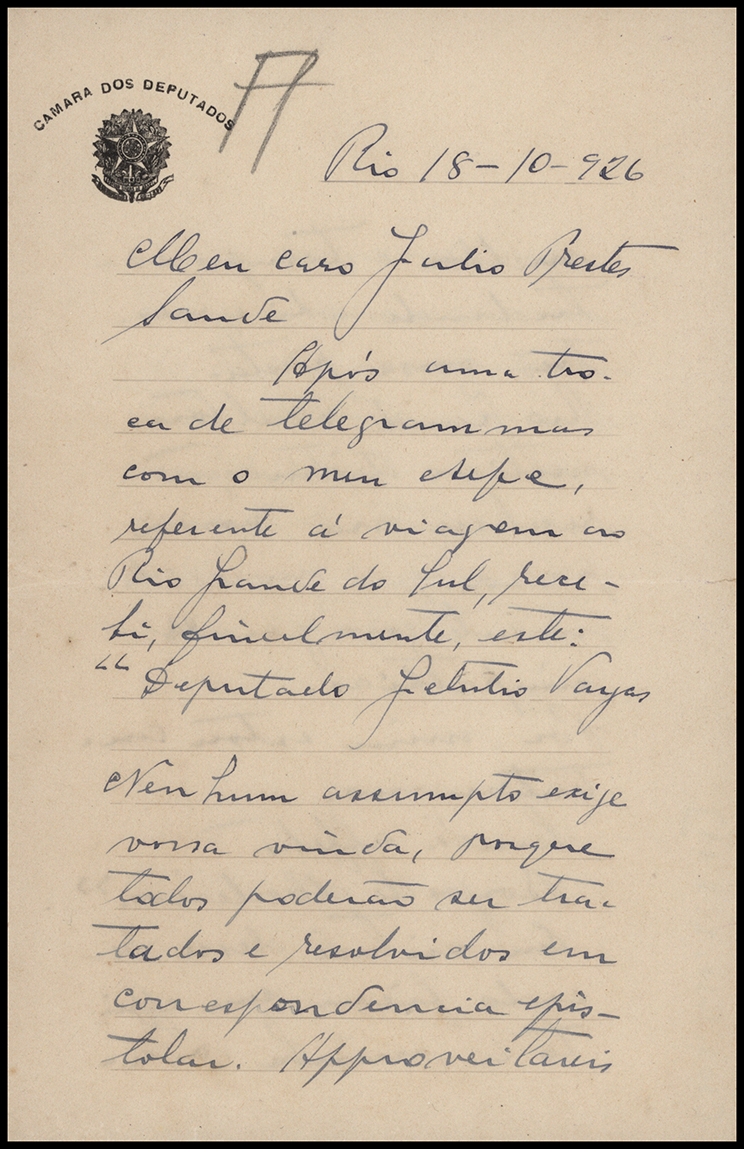 CAMARA DOS DEPUTADOS
Rio 18-10-926
Meu caro Julio Prestes
Saude
Após uma tro-
ca de telegrammas
com o meu chefe,
referente á viagem ao
Rio Grande do Sul, rece-
bi, finalmente, este:
"Deputado Getulio Vargas
Nenhum assumpto exige
vossa vinda, porque
todos poderão ser tra-
tados e resolvidos em
correspondencia epis-
tolar. Approveitareis